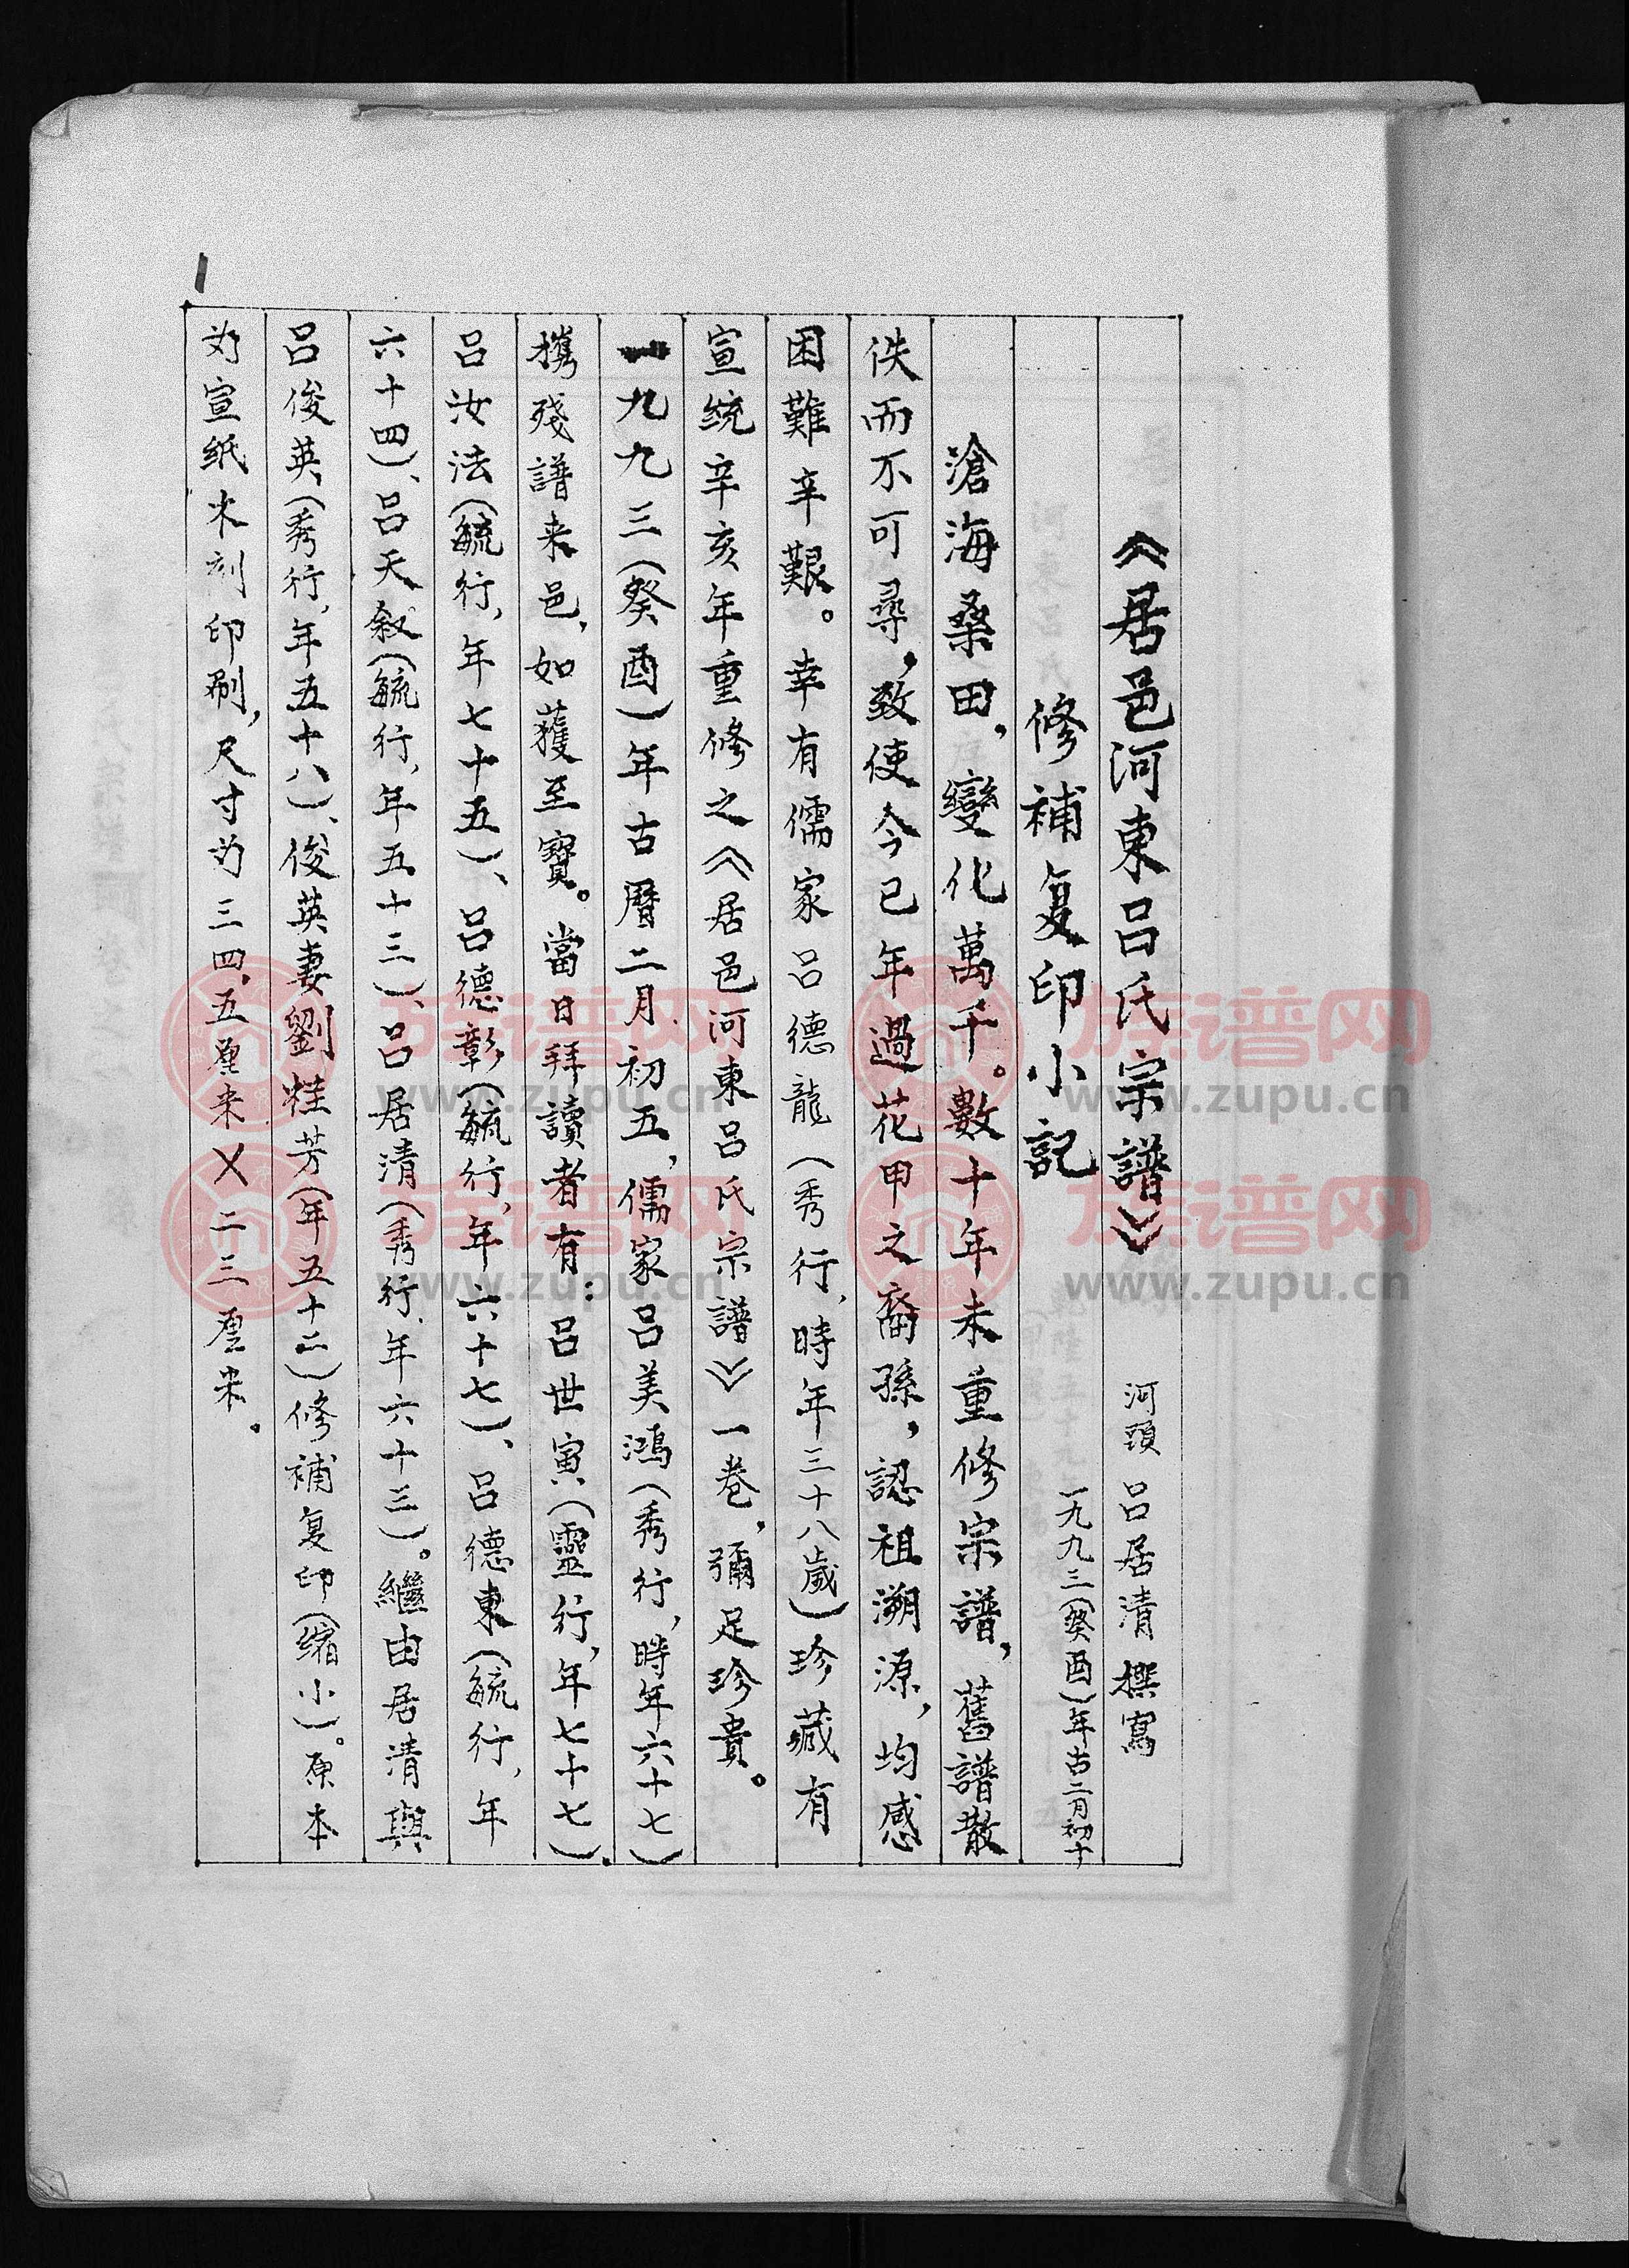 《居邑河東吕氏宗譜》 河頭 吕居清 撰寫
修補复印小記 一九九三(癸酉)年古二月初十
滄海桑田，變化萬千。數十年未重修宗譜，舊譜散
佚而不可尋，致使今已年過花甲之裔孫，認祖溯源，均感
困難辛艱。幸有儒家吕德龍(秀行，時年三十八歲)珍藏有
宣统辛亥年重修之《居邑河東吕氏宗譜》一卷，彌足珍貴。
一九九三(癸酉)年古曆二月初五，儒家吕美鴻(秀行，時年六十七)
携殘譜来邑，如獲至寶。當日拜讀者有：吕世寅(靈行，年七十七)
吕汝法(毓行，年七十五)、吕德彰(毓行，年六十七)、吕德東(毓行，年
六十四)、吕天叙(毓行，年五十三)、吕居清(秀行，年六十三)。繼由居清與
吕俊英(秀行，年五十八)、俊英妻劉桂芳(年五十二)修補复印(缩小)。原本
为宣纸木刻印刷，尺寸为三四.五厘米X二三厘米。
1
族谱网 www.zupu.cn
族谱网 www.zupu.cn
族谱网 www.zupu.cn
族谱网 www.zupu.cn